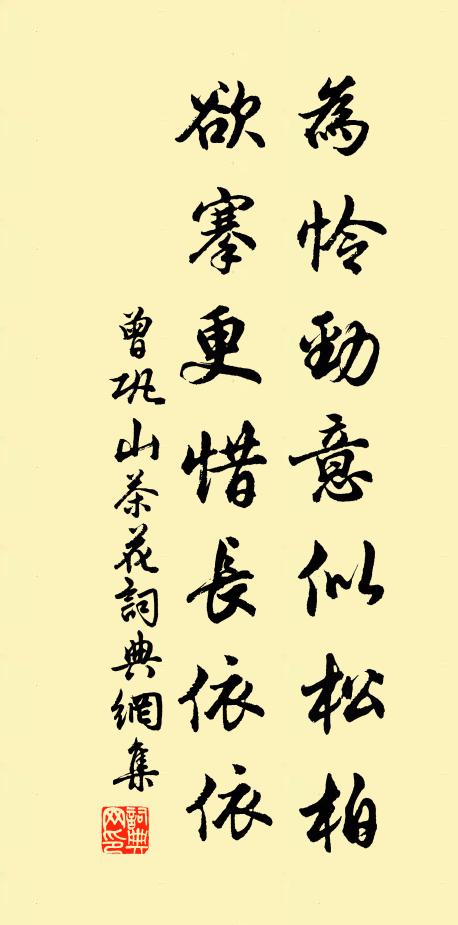 為怜勁意似松柏
欲搴更惜長依依
曾巩山茶花詞典網集
詞典網印